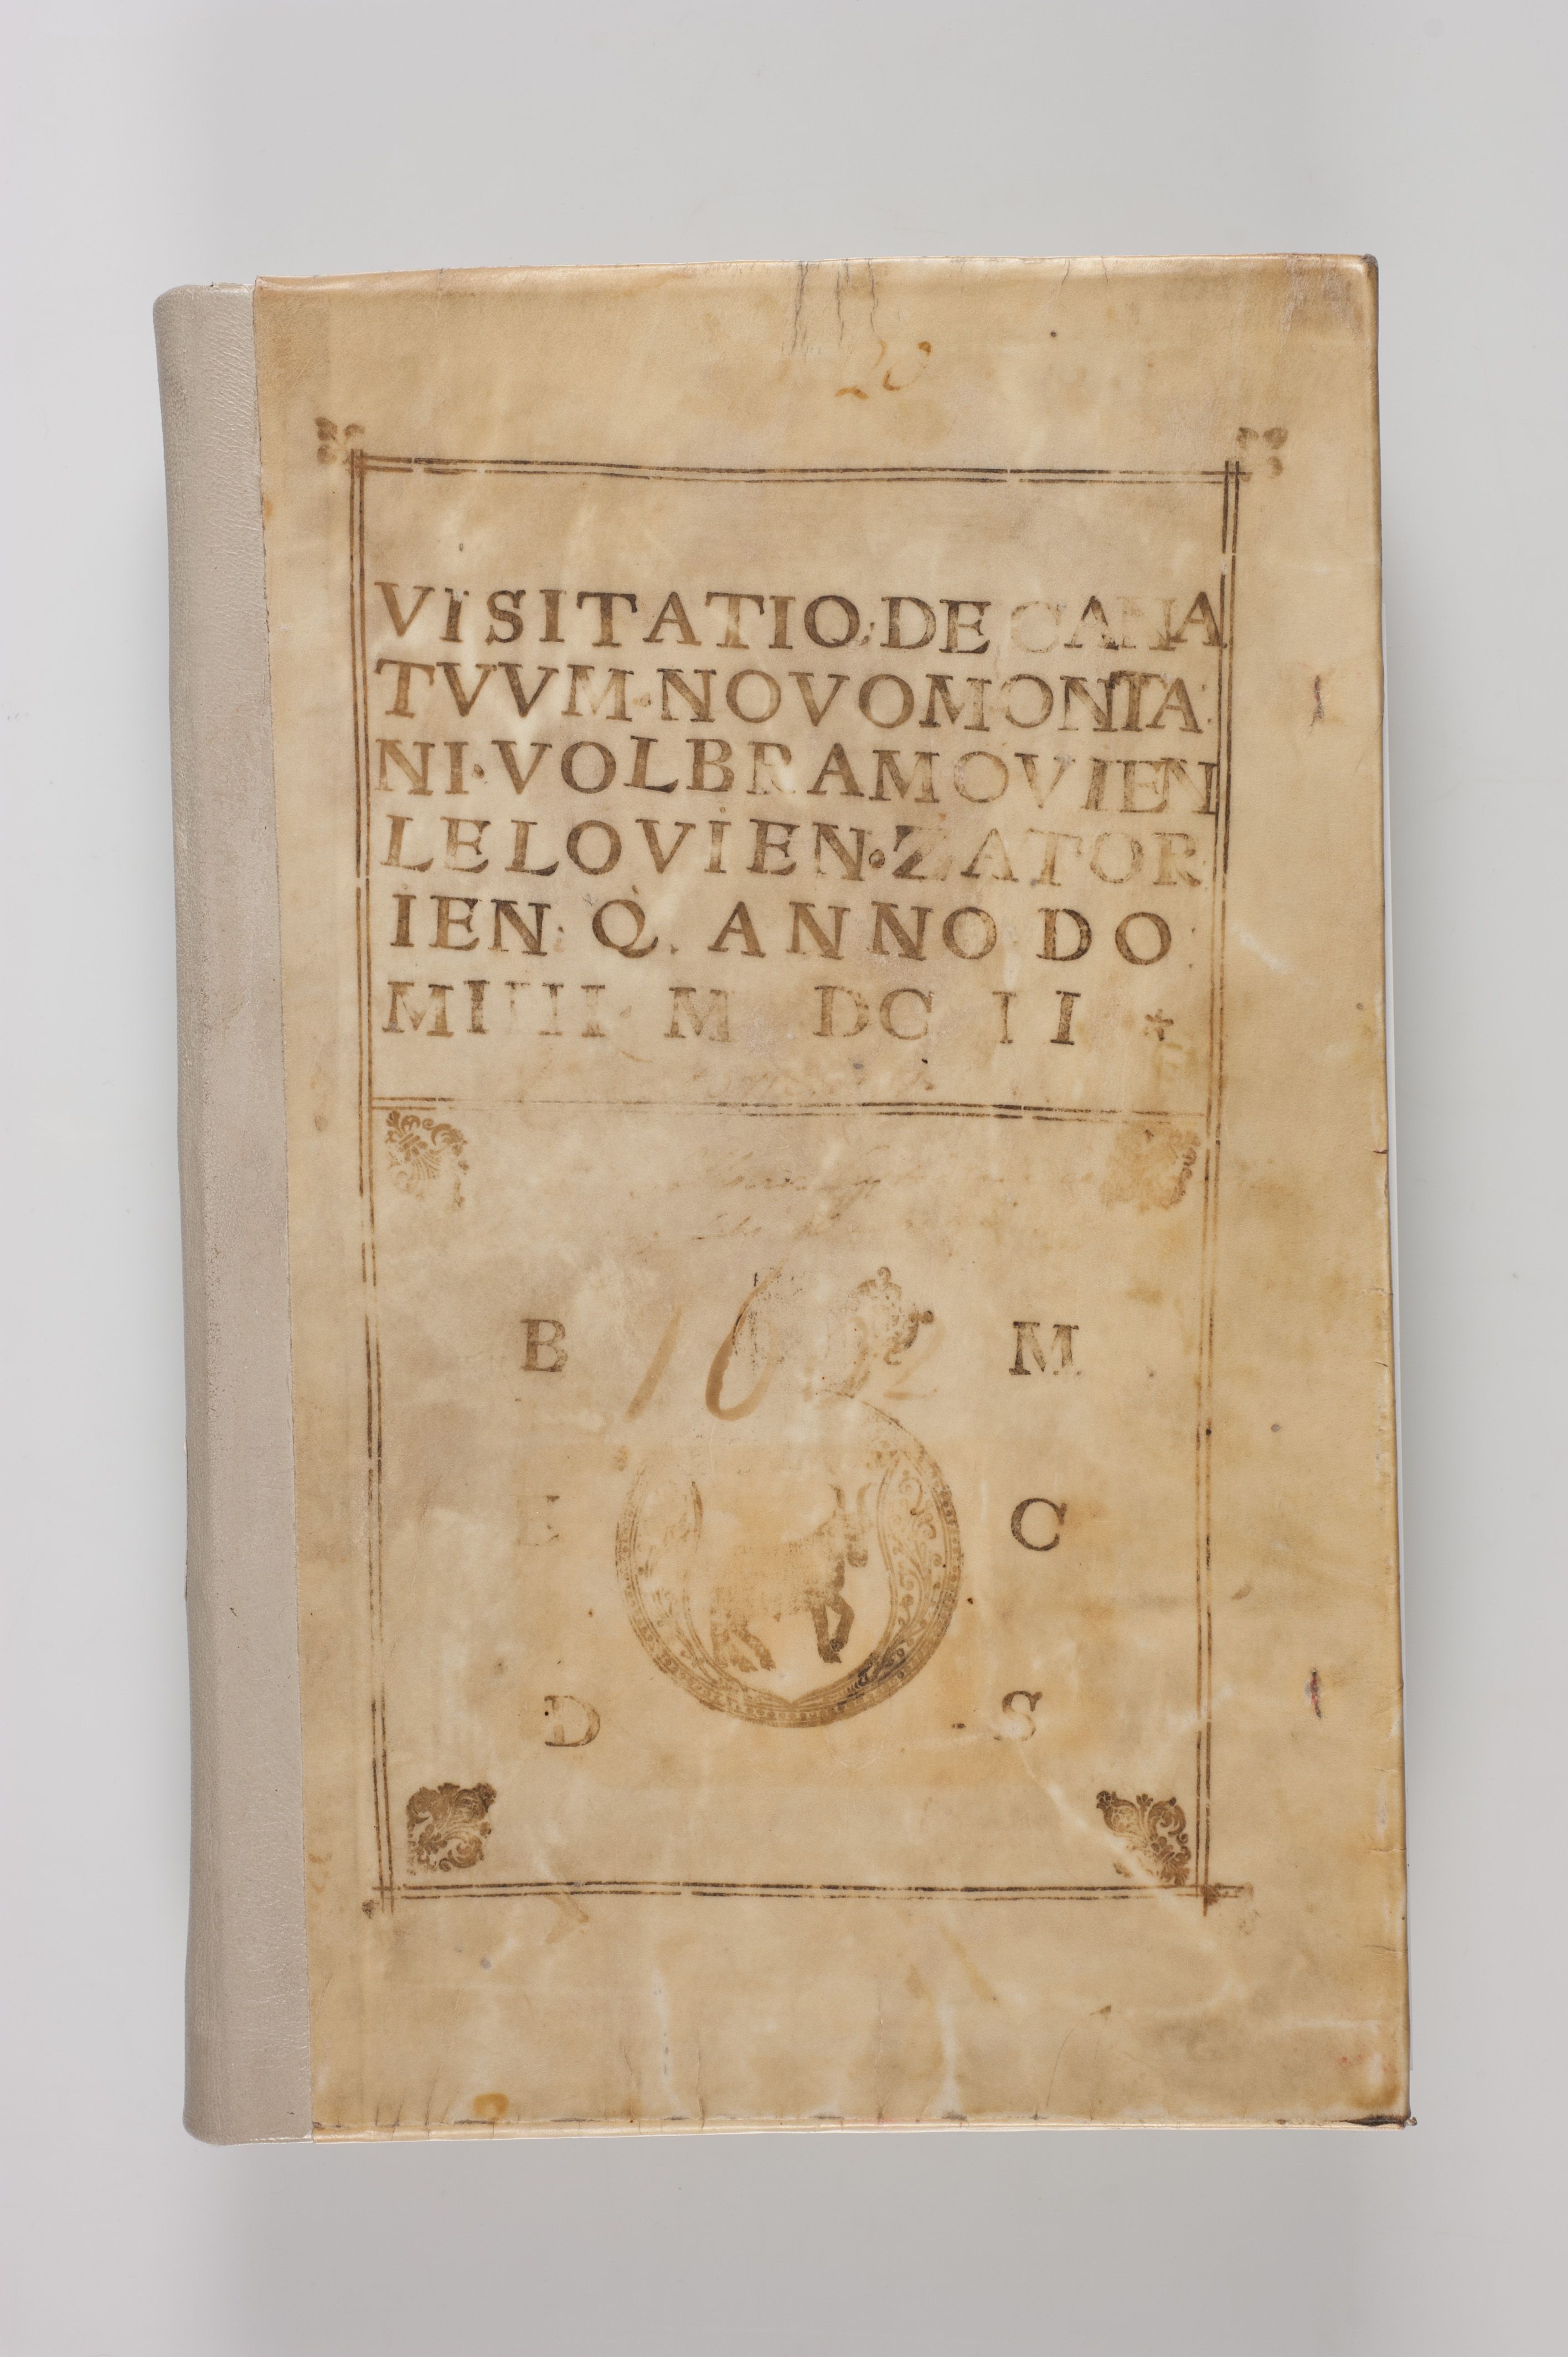 20
VISITATIO DECANA
TVVM·NOVOMONTA
NI·VOLBRAMOVIEN
LELOVIEN·ZATOR
IEN Q. ANNO DO
MINI M DC II *
B M
1602
E C
D S